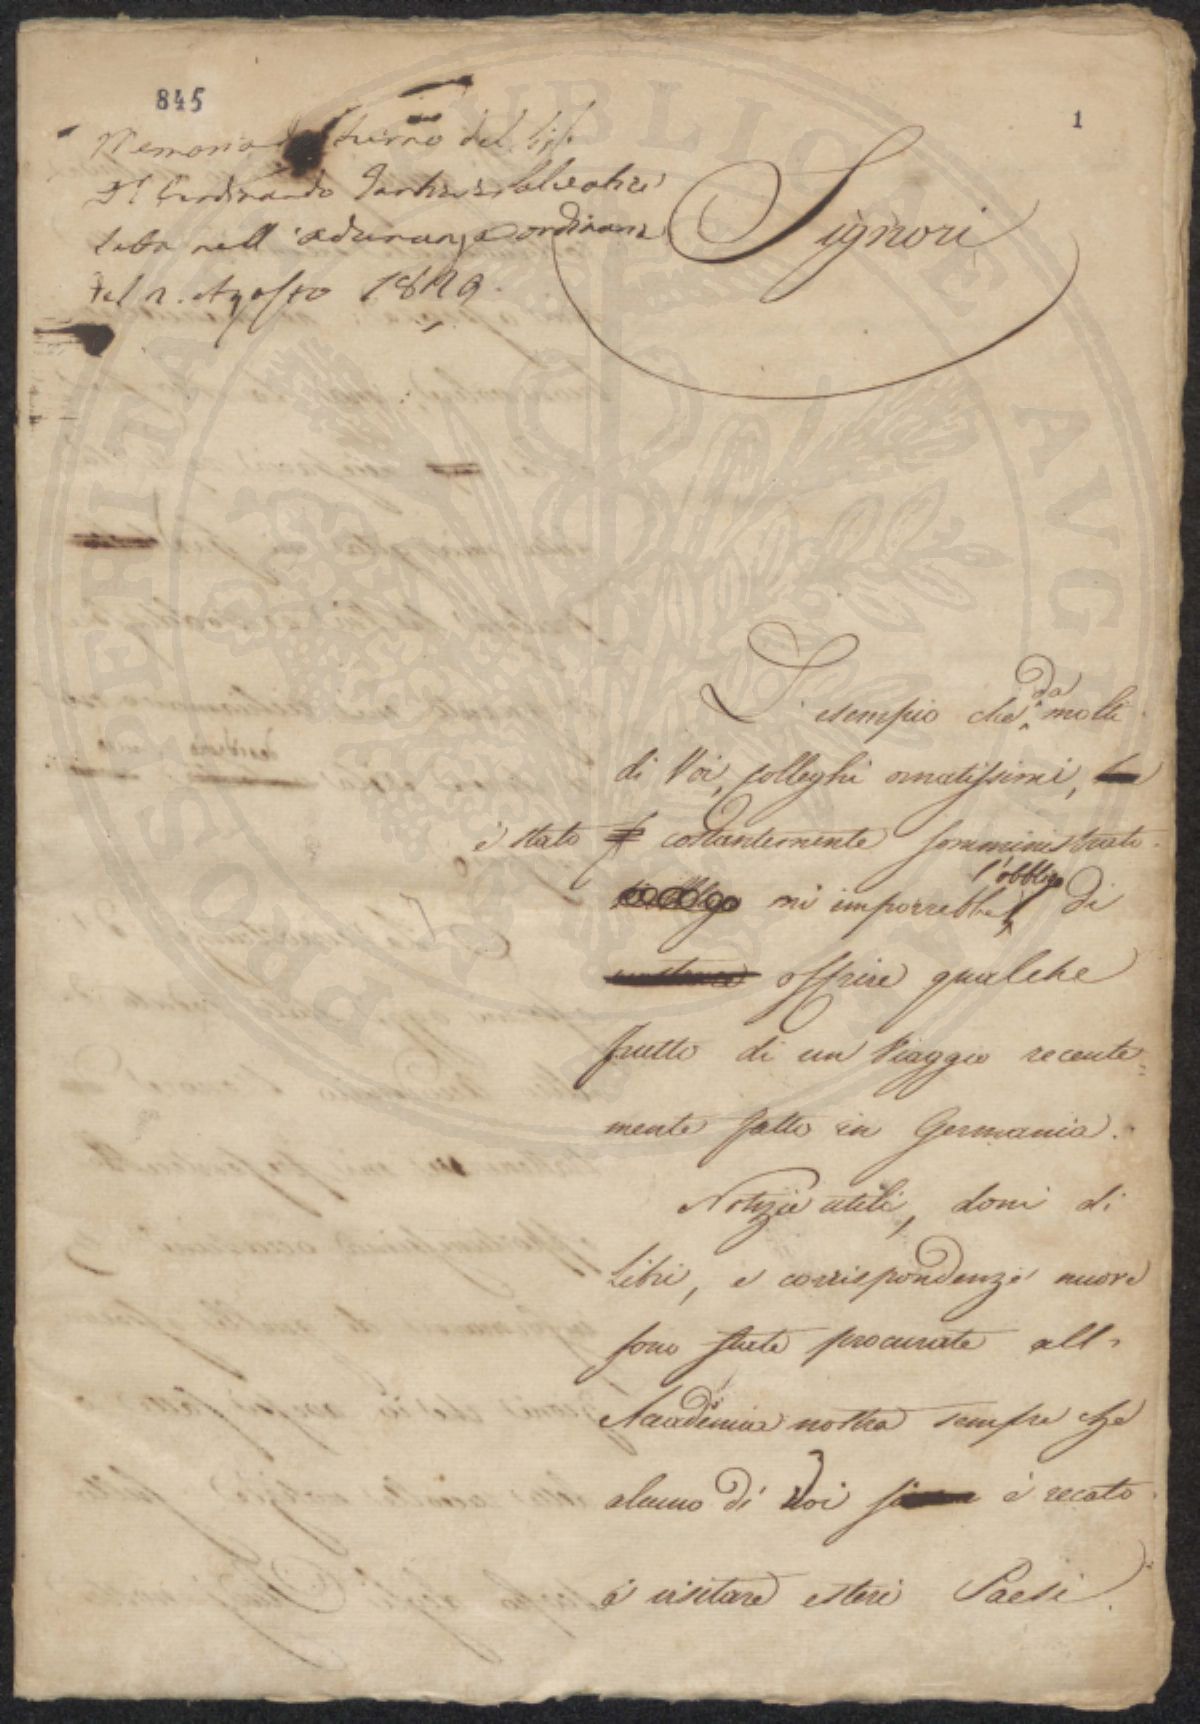 845
1
Memoria di turno del Sig.
Ferdinando Tartini Salvatici
letta nell'adunanza ordinaria
del 2. Agosto 1829.
Signori
L'esempio che da molti
di Voi, colleghi ornatissimi,
è stato costantemente somministrato
mi imporrebbe l'obbligo di
offrire qualche
frutto di un Viaggio recente=
mente fatto in Germania.
Notizie utili, doni di
Libri, e corrispondenze nuove
sono state procurate all'
Accademia nostra sempre che
alcuno di Voi si è recato
a visitare esteri Paesi.
PROSPERITATI PUBLICAE AUGENDAE